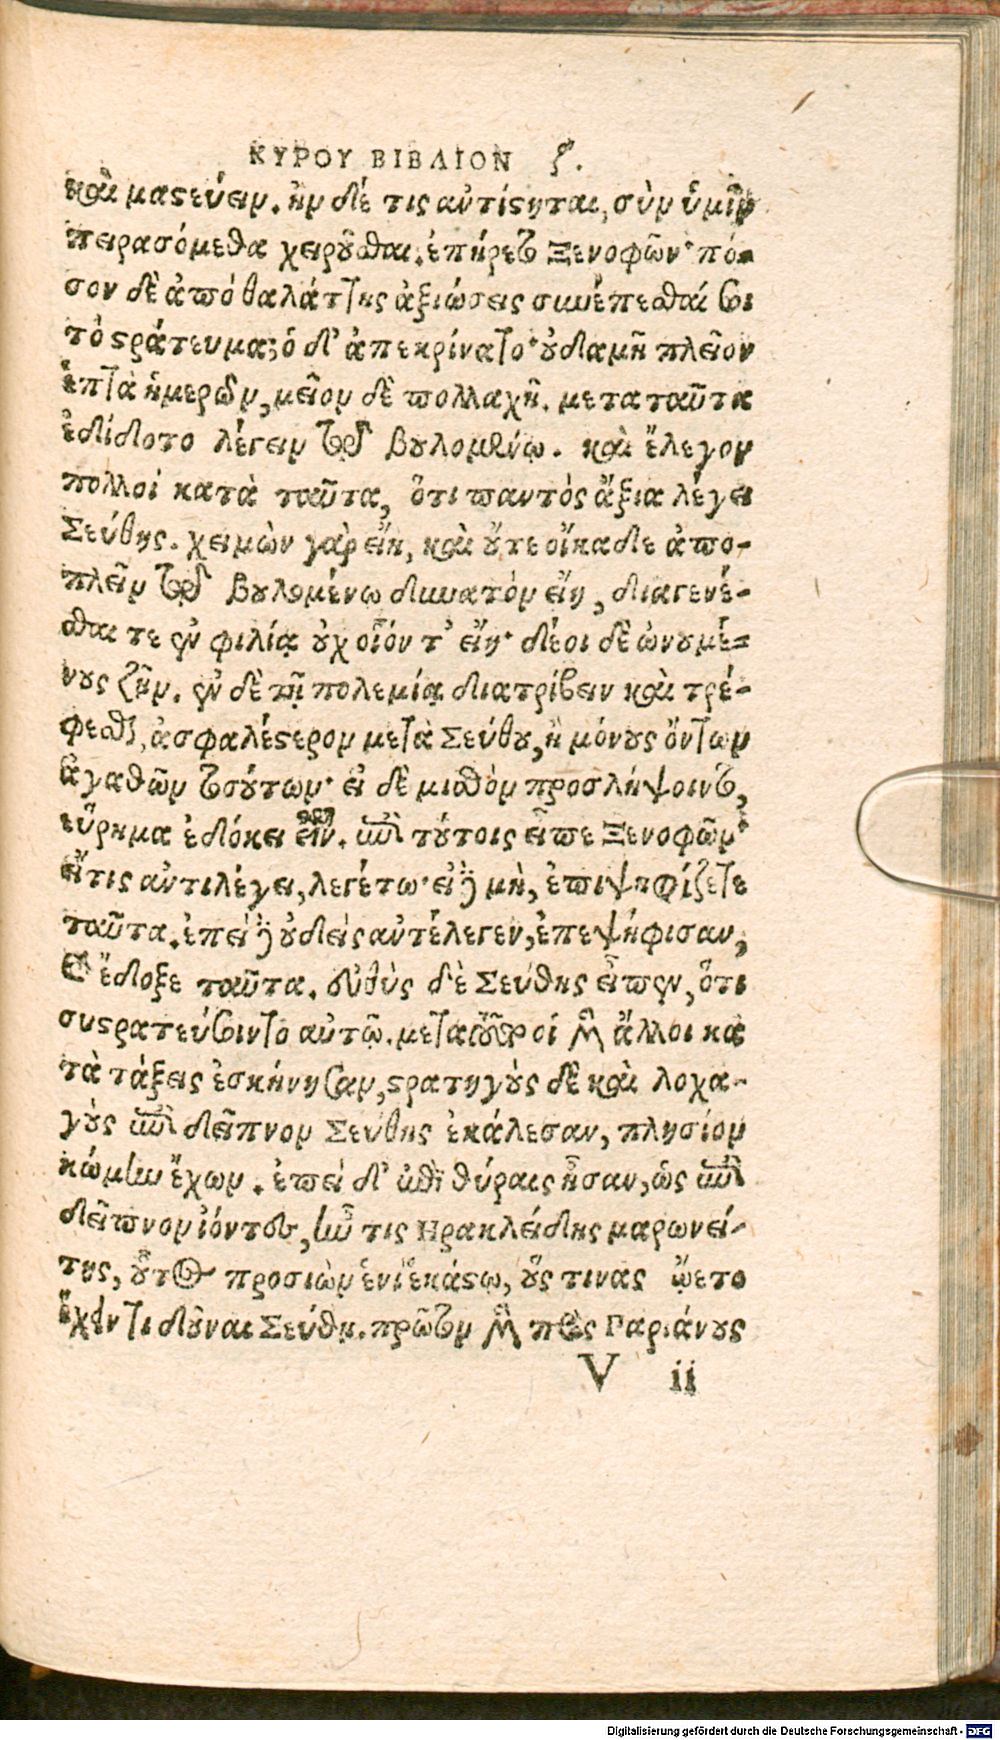 ΚΥΡΟΥ ΒΙΒΛΙΟΝ ζ.
καὶ μαστεύειν. ἢν δέ τις αὐτίστηται, σὺν ὑμῖν
πειρασόμεθα χειροῦσθαι. ἐπήρετο Ξενοφῶν· πό-
σον δὲ ἀπὸ θαλάττης ἀξιώσεις συνέπεσθαί σοι
τὸ στράτευμα; ὁ δ' ἀπεκρίνατο· οὐδαμῆ πλεῖον
ἑπτὰ ἡμερῶν, μεῖον δὲ πολλαχῆ. μετα ταῦτα
ἐδίδοτο λέγειν τῷ βουλομένῳ. καὶ ἔλεγον
πολλοί κατὰ ταῦτα, ὅτι παντὸς ἄξια λέγει
Σεύθης. χειμὼν γὰρ εἴη, καὶ οὔτε οἴκαδε ἀπο-
πλεῖν τῷ βουλομένῳ δυνατὸν εἴη, διαγενέ-
σθαι τε ἐν φιλίᾳ οὐχ οἷόν τ' εἴη· δέοι δὲ ὠνουμέ-
νους ζῆν. ἐν δὲ τῇ πολεμίᾳ διατρίβειν καὶ τρέ-
φεσθαι, ἀσφαλέστερον μετὰ Σεύθου, ἢ μόνους ὄντων
ἀγαθῶν τοσούτων· εἰ δὲ μισθὸν προσλήψοιντο,
εὕρημα ἐδόκει εἶναι. ἐπὶ τούτοις εἶπε Ξενοφῶν·
εἴτις αντιλέγει, λεγέτω· εἰ δὲ μὴ, ἐπιψηφίζετε
ταῦτα. ἐπεὶ δὲ οὐδεὶς αὐτέλεγεν, ἐπεψήφισαν,
καὶ ἔδοξε ταῦτα. εὐθὺς δὲ Σεύθης εἶπεν, ὅτι
συστρατεύσοιντο αὐτῷ. μετα τοῦτο οἱ μὲν ἄλλοι κα
τὰ τάξεις ἐσκήνησαν, στρατηγοὺς δὲ καὶ λοχα-
γοὺς ἐπὶ δεῖπνον Σεύθης ἐκάλεσαν, πλησίον
κώμην ἔχων. ἐπεὶ δ' ἐπὶ θύραις ἦσαν, ὡς ἐπὶ
δεῖπνον ἰόντες, ἦν τις Ηρακλείδης μαρωνεί-
της, οὗτος προσιὼν ἑνὶ ἑκάστῳ, οὕς τινας ᾤετο
ἔχειν τι δοῦναι Σεύθῃ. πρῶτον μὲν πρὸς Παριάνους
V ii
Digitalisierung gefördert durch die Deutsche Forschungsgemeinschaft - DFG